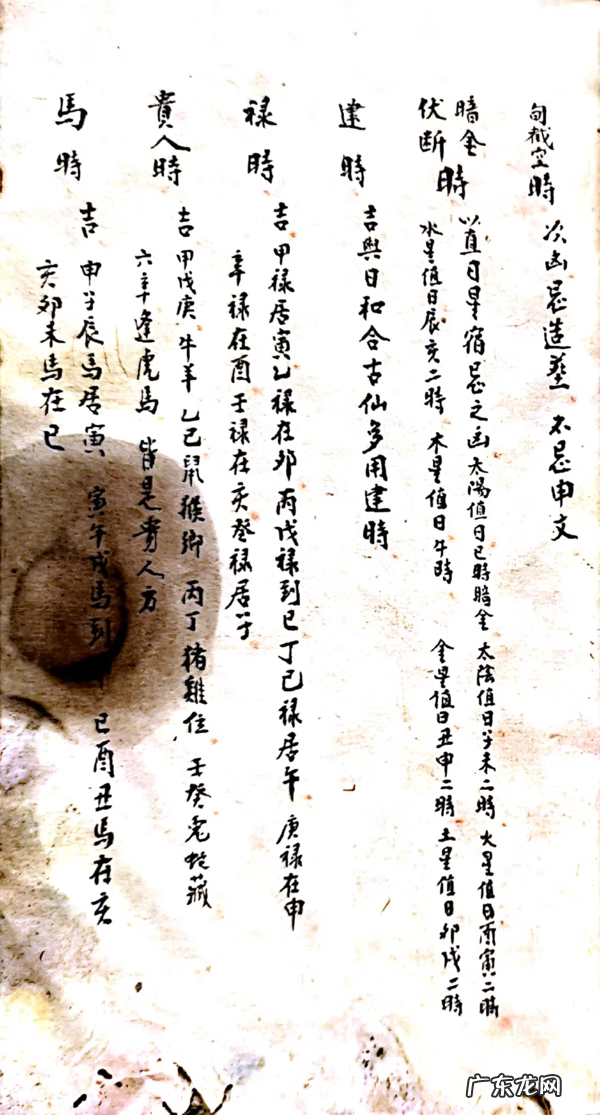 旬截空時 次凶忌造葬 不忌申文
暗金伏断時 以直日星宿忌之凶 太陽值日巳時暗金 太陰值日子未二時 火星值日酉寅二時
水星值日辰亥二時 木星值日午時 金星值日丑申二時 土星值日卯戌二時
建時 吉與日和合古仙多用建時
禄時 吉 甲禄居寅乙禄在卯丙戊禄到巳丁己禄居午 庚禄在申
辛禄在酉壬禄在亥癸禄居子
貴人時 吉 甲戊庚牛羊 乙己鼠猴鄉 丙丁猪雞位 壬癸兎蛇藏
六辛逢虎馬 皆是貴人方
馬時 吉 申子辰馬居寅 寅午戌馬到申 巳酉丑馬在亥
亥卯未馬在巳
广东龙网